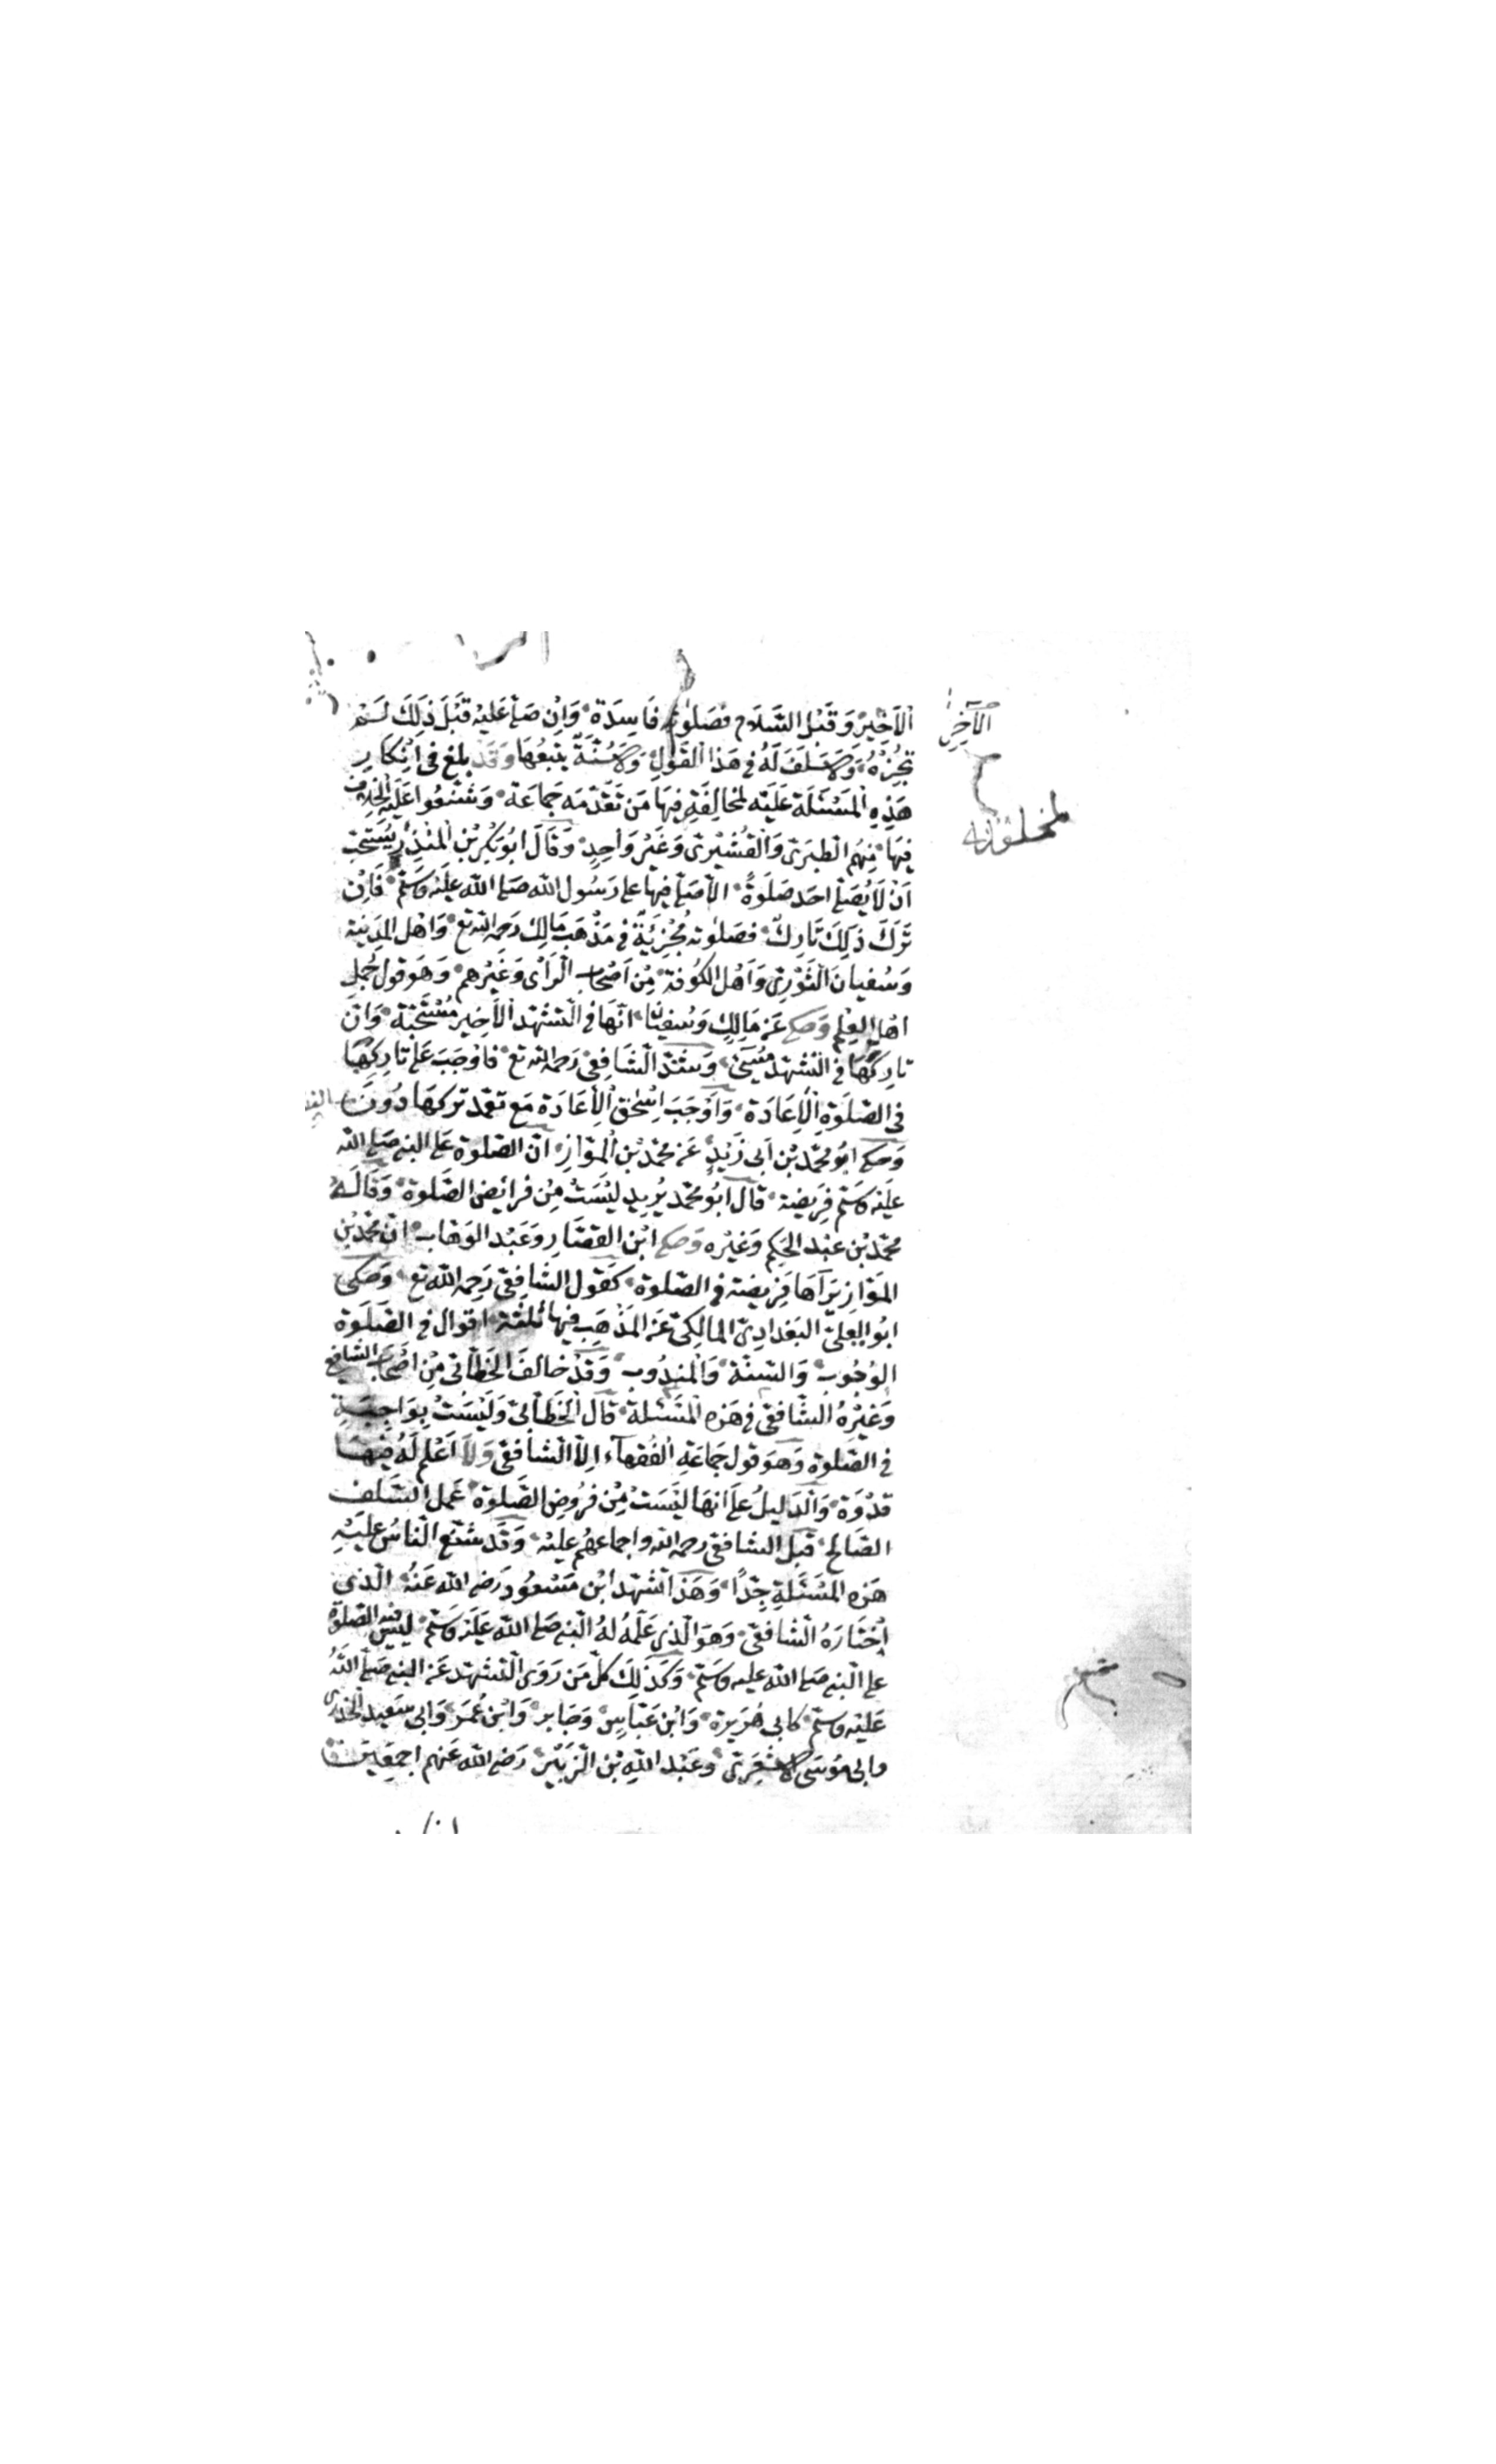 الآخر
لمخلوقاته
الْاَخِيْرْ وَقَبْلَ السَّلَام فصَلٰوته فَاسِدَة وَاِنْ صَلّٰى عَلَيْه قَبْلَ ذٰلِكَ لَمْ
تَجُزِهْ وَلَا سَلَفَ لَهُ فى هَذا الْقَوْلِ وَلَا سُنَّةَ يَتبعُهَا وَقَد بلغ فى اِنْكارِ
هَذِهِ المَسْئَلَة عَلَيْه لمخالِفَتِهِ فِيهَا مَنْ تَقَدَّمَه جَمَاعَة وَشَنَّعُوا عَلَيْه الخلاف
فِيهَا مِنْهُم الطبَرىّ وَالْقُشَيْرىّ وَغَيْرُ وَاحِدٍ وَقَالَ ابُو بَكْر بْن المُنْذِر يُسْتَحَبّ
اَنْ لَا يُصَلّى احَد صَلَوةً الّا صَلّى فِيهَا على رَسُول الله صَلى الله عَلَيْه وَسَلّم فَاِنْ
تَرَكَ ذَلِكَ تَارِكٌ فصَلٰوته مُجْزِئَةٌ فى مَذْهَب مَالِك رَحمه الله تع وَاهْل المَدينة
وَسُفيانَ الثَّوْرِى وَاَهْل الكُوفَة مِنْ اَصْحَاب الْرَأى وَغَيْرهم وَهُوَ قول جُمَل
اهْلِ الْعِلْم وَحكى عَنْ مَالِكٍ وَسُفيٰانَ انّهَا فى التَّشَهّد الْاَخِير مُسْتَحَبَّة وَانّ
تارِكهَا فى التَشَهّد مُسىءٌ وَشَذّ الشَّافِعى رَحمه الله تع فاَوْجَبَ عَلٰى تارِكِهَا
فى الصَّلٰوةِ الْاِعَادَة وَاَوْجَبَ اِسْحٰق الْاِعَادَة مَعَ تعَمّد تَركهَا دُونَ
وَحكى ابُو مُحَمّد بْن اَبى زَيْدٍ عَنْ مُحَمّد بْن المَوّازِ انّ الصّلٰوة عَلى النبى صَلى الله
عَلَيْه وَسَلّم فَريضة قال ابُو مُحَمّد يُريد لَيْسَتْ مِنْ فَرائِض الصَّلٰوة وَقَالَهُ
مُحَمّد بْن عَبْد الحَكَم وَغَيْره وَحكى ابْن القصَّارِ وَعَبْد الوَهّاب انّ مُحَمّد بْن
المَوّازِ يَرَآهَا فَرِيضَة فى الصّلٰوة كَقَول الشَّافِعِى رَحِمَه الله تع وَحَكى
ابُو يعلى البَغدادِىّ المَالِكى عَنِ المَذْهَبِ فيها ثلٰثة اقوال فى الصَّلٰوة
الوُجُوب وَالسُنّة وَالمندُوب وَقَدْ خَالَفَ الخَطابى مِنْ اَصْحَابِ الشَافِعِى
وَغَيْرُهُ الشّافعى فى هَذِهِ المَسْئَلَة قال الخَطابى وَلَيْسَتْ بِوَاجِبَةٍ
فى الصّلٰوة وَهُوَ قول جَمَاعَةِ الْفُقهَآءِ اِلّا الشَّافعى وَلَا اَعْلَم لَهُ فِيْهَا
قدْوَة وَالدَلِيلُ عَلٰى انّهَا لَيْسَتْ مِنْ فُرُوضِ الصَّلٰوة عَمَل السَّلَف
الصَّالِح قبل الشافعى رحمه الله واجماعهُم عليْه وَقَد شَنَّعَ النّاسُ عليْهِ
هَذِهِ المَسْئَلَة جِدًّا وَهَذا تشهّد ابْن مَسْعُود رَضى الله عَنْهُ الذى
اِخْتَارَهُ الشّافعى وَهُوَ الَّذِى عَلّمهُ لَهُ النّبى صَلى الله عَلَيْه وَسَلّم لَيْسَ فيه الصّلٰوة
على النّبى صَلى الله عليه وَسَلّم وَكَذلِكَ كُلّ مَن رَوَى التَّشَهّد عَنِ النبى صَلّى اللهُ
عَلَيْه وَسَلّم كابى هُرَيرة وَابْن عَبّاسٍ وَجَابِر وَابْن عُمَر وَابى سَعِيد الخُدْرى
وابى مُوسَى الاشْعَرِىّ وعَبْد اللهِ بْن الزّبَيْر رَضى الله عَنهم اجمَعِين